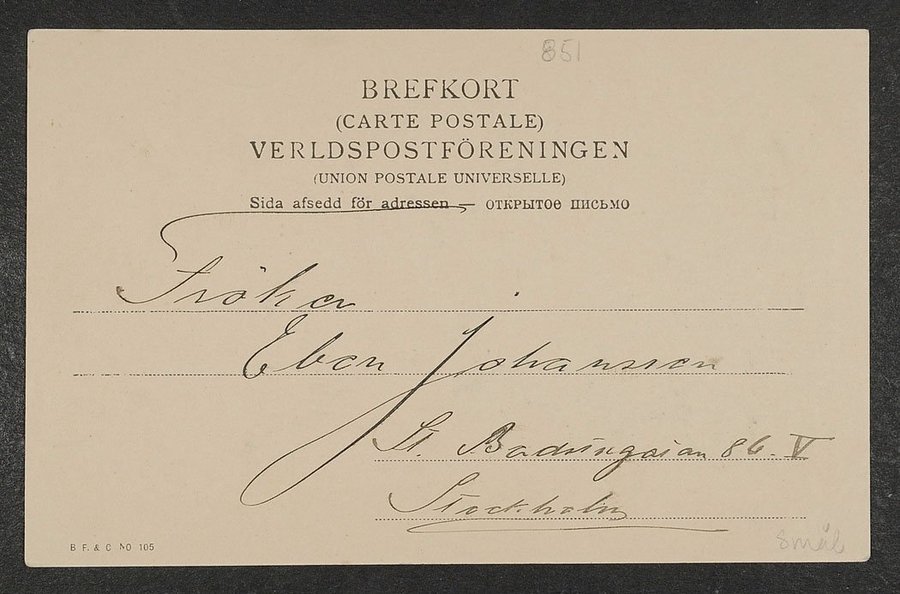 851
BREFKORT
(CARTE POSTALE)
VERLDSPOSTFÖRENINGEN
(UNION POSTALE UNIVERSELLE)
Sida afsedd för adressen — ОТКРЫТОЕ ПИСЬМО
Fröken
Eben Johansson
St. 86. V
Stockholm
B F. & C NO 105
små